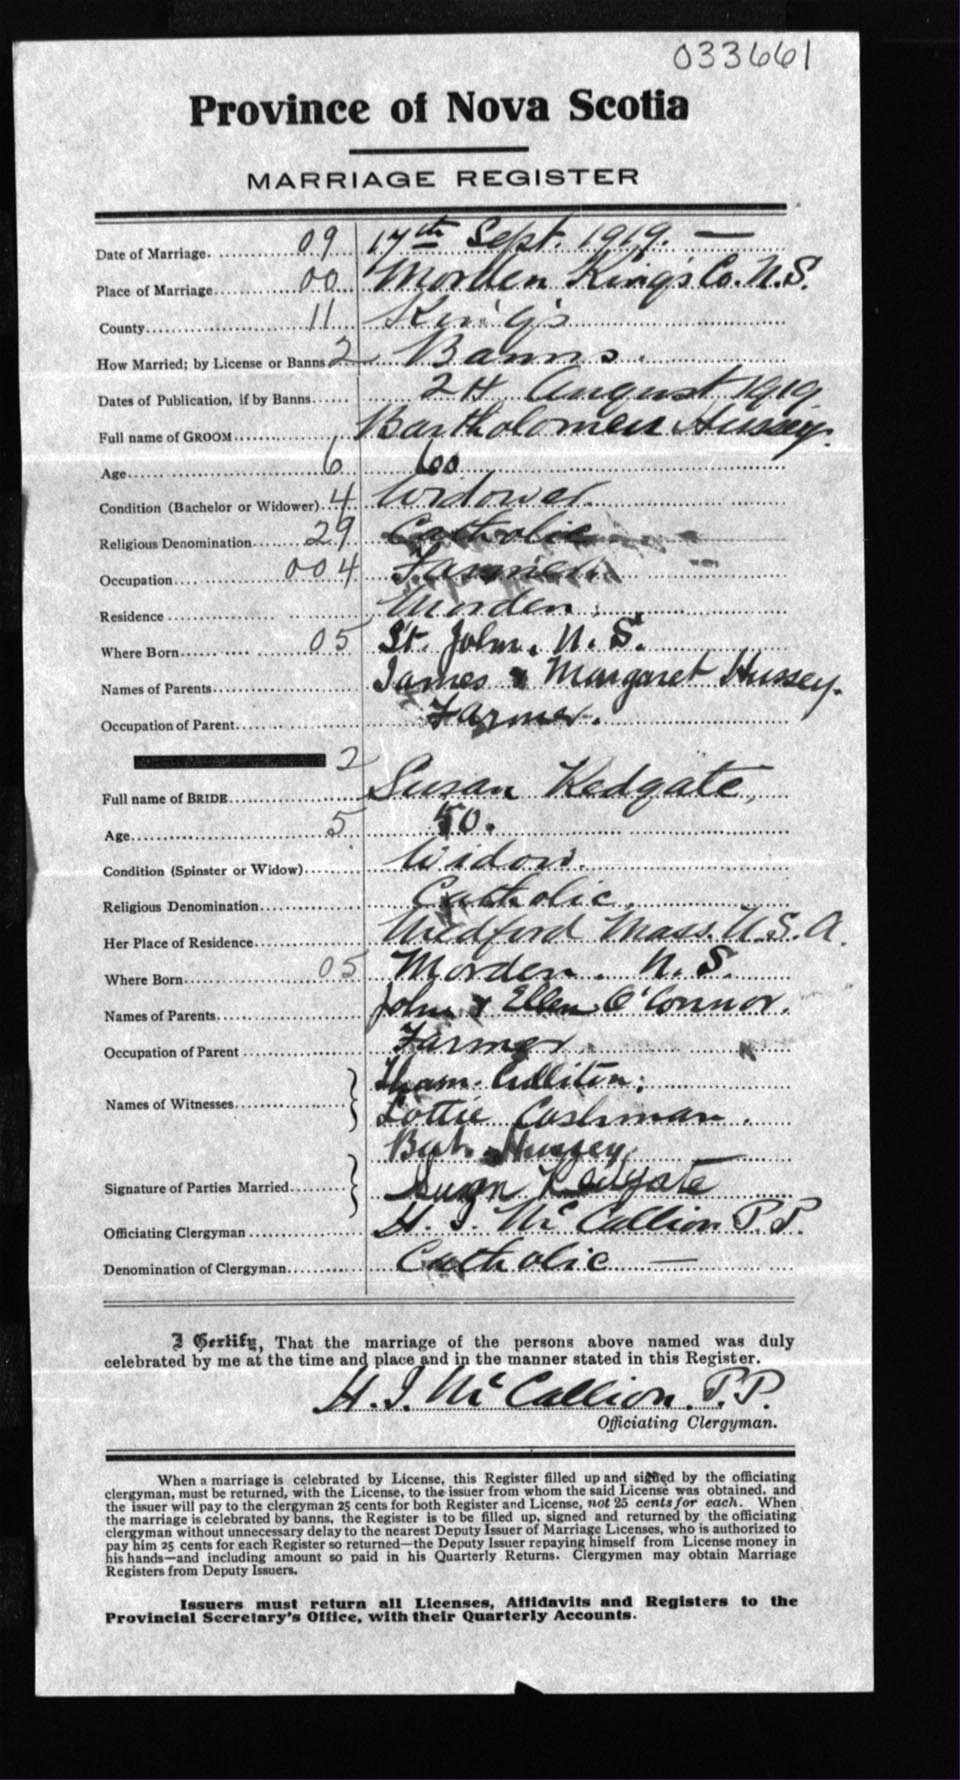 033661
Province of Nova Scotia
MARRIAGE REGISTER
Date of Marriage. 09 17th Sept. 1919. —
Place of Marriage 00 Morden King's Co. N.S.
County 11 King's
How Married; by License or Banns 2 Banns.
Dates of Publication, if by Banns 24 August 1919
Full name of GROOM Bartholomew Hussey.
Age 6 60
Condition (Bachelor or Widower) 4 Widower
Religious Denomination 29 Catholic
Occupation 004 Farmer
Residence Morden
Where Born 05 St. John, N. S.
Names of Parents James & Margaret Hussey.
Occupation of Parent Farmer.
2
Full name of BRIDE Susan Redgate,
Age 5 50.
Condition (Spinster or Widow) Widow.
Religious Denomination Catholic.
Her Place of Residence Medford Mass. U.S.A.
Where Born 05 Morden. N. S.
Names of Parents John & Ellen O'Connor.
Occupation of Parent Farmer
Names of Witnesses
Lottie Cashman.
Bart. Hussey
Signature of Parties Married Susan Redgate
Officiating Clergyman H. I. McCallion P.P.
Denomination of Clergyman Catholic —
I Certify, That the marriage of the persons above named was duly
celebrated by me at the time and place and in the manner stated in this Register.
H. I. McCallion. P.P.
Officiating Clergyman.
When a marriage is celebrated by License, this Register filled up and signed by the officiating
clergyman, must be returned, with the License, to the issuer from whom the said License was obtained, and
the issuer will pay to the clergyman 25 cents for both Register and License, not 25 cents for each. When
the marriage is celebrated by banns, the Register is to be filled up, signed and returned by the officiating
clergyman without unnecessary delay to the nearest Deputy Issuer of Marriage Licenses, who is authorized to
pay him 25 cents for each Register so returned—the Deputy Issuer repaying himself from License money in
his hands—and including amount so paid in his Quarterly Returns. Clergymen may obtain Marriage
Registers from Deputy Issuers.
Issuers must return all Licenses, Affidavits and Registers to the
Provincial Secretary's Office, with their Quarterly Accounts.